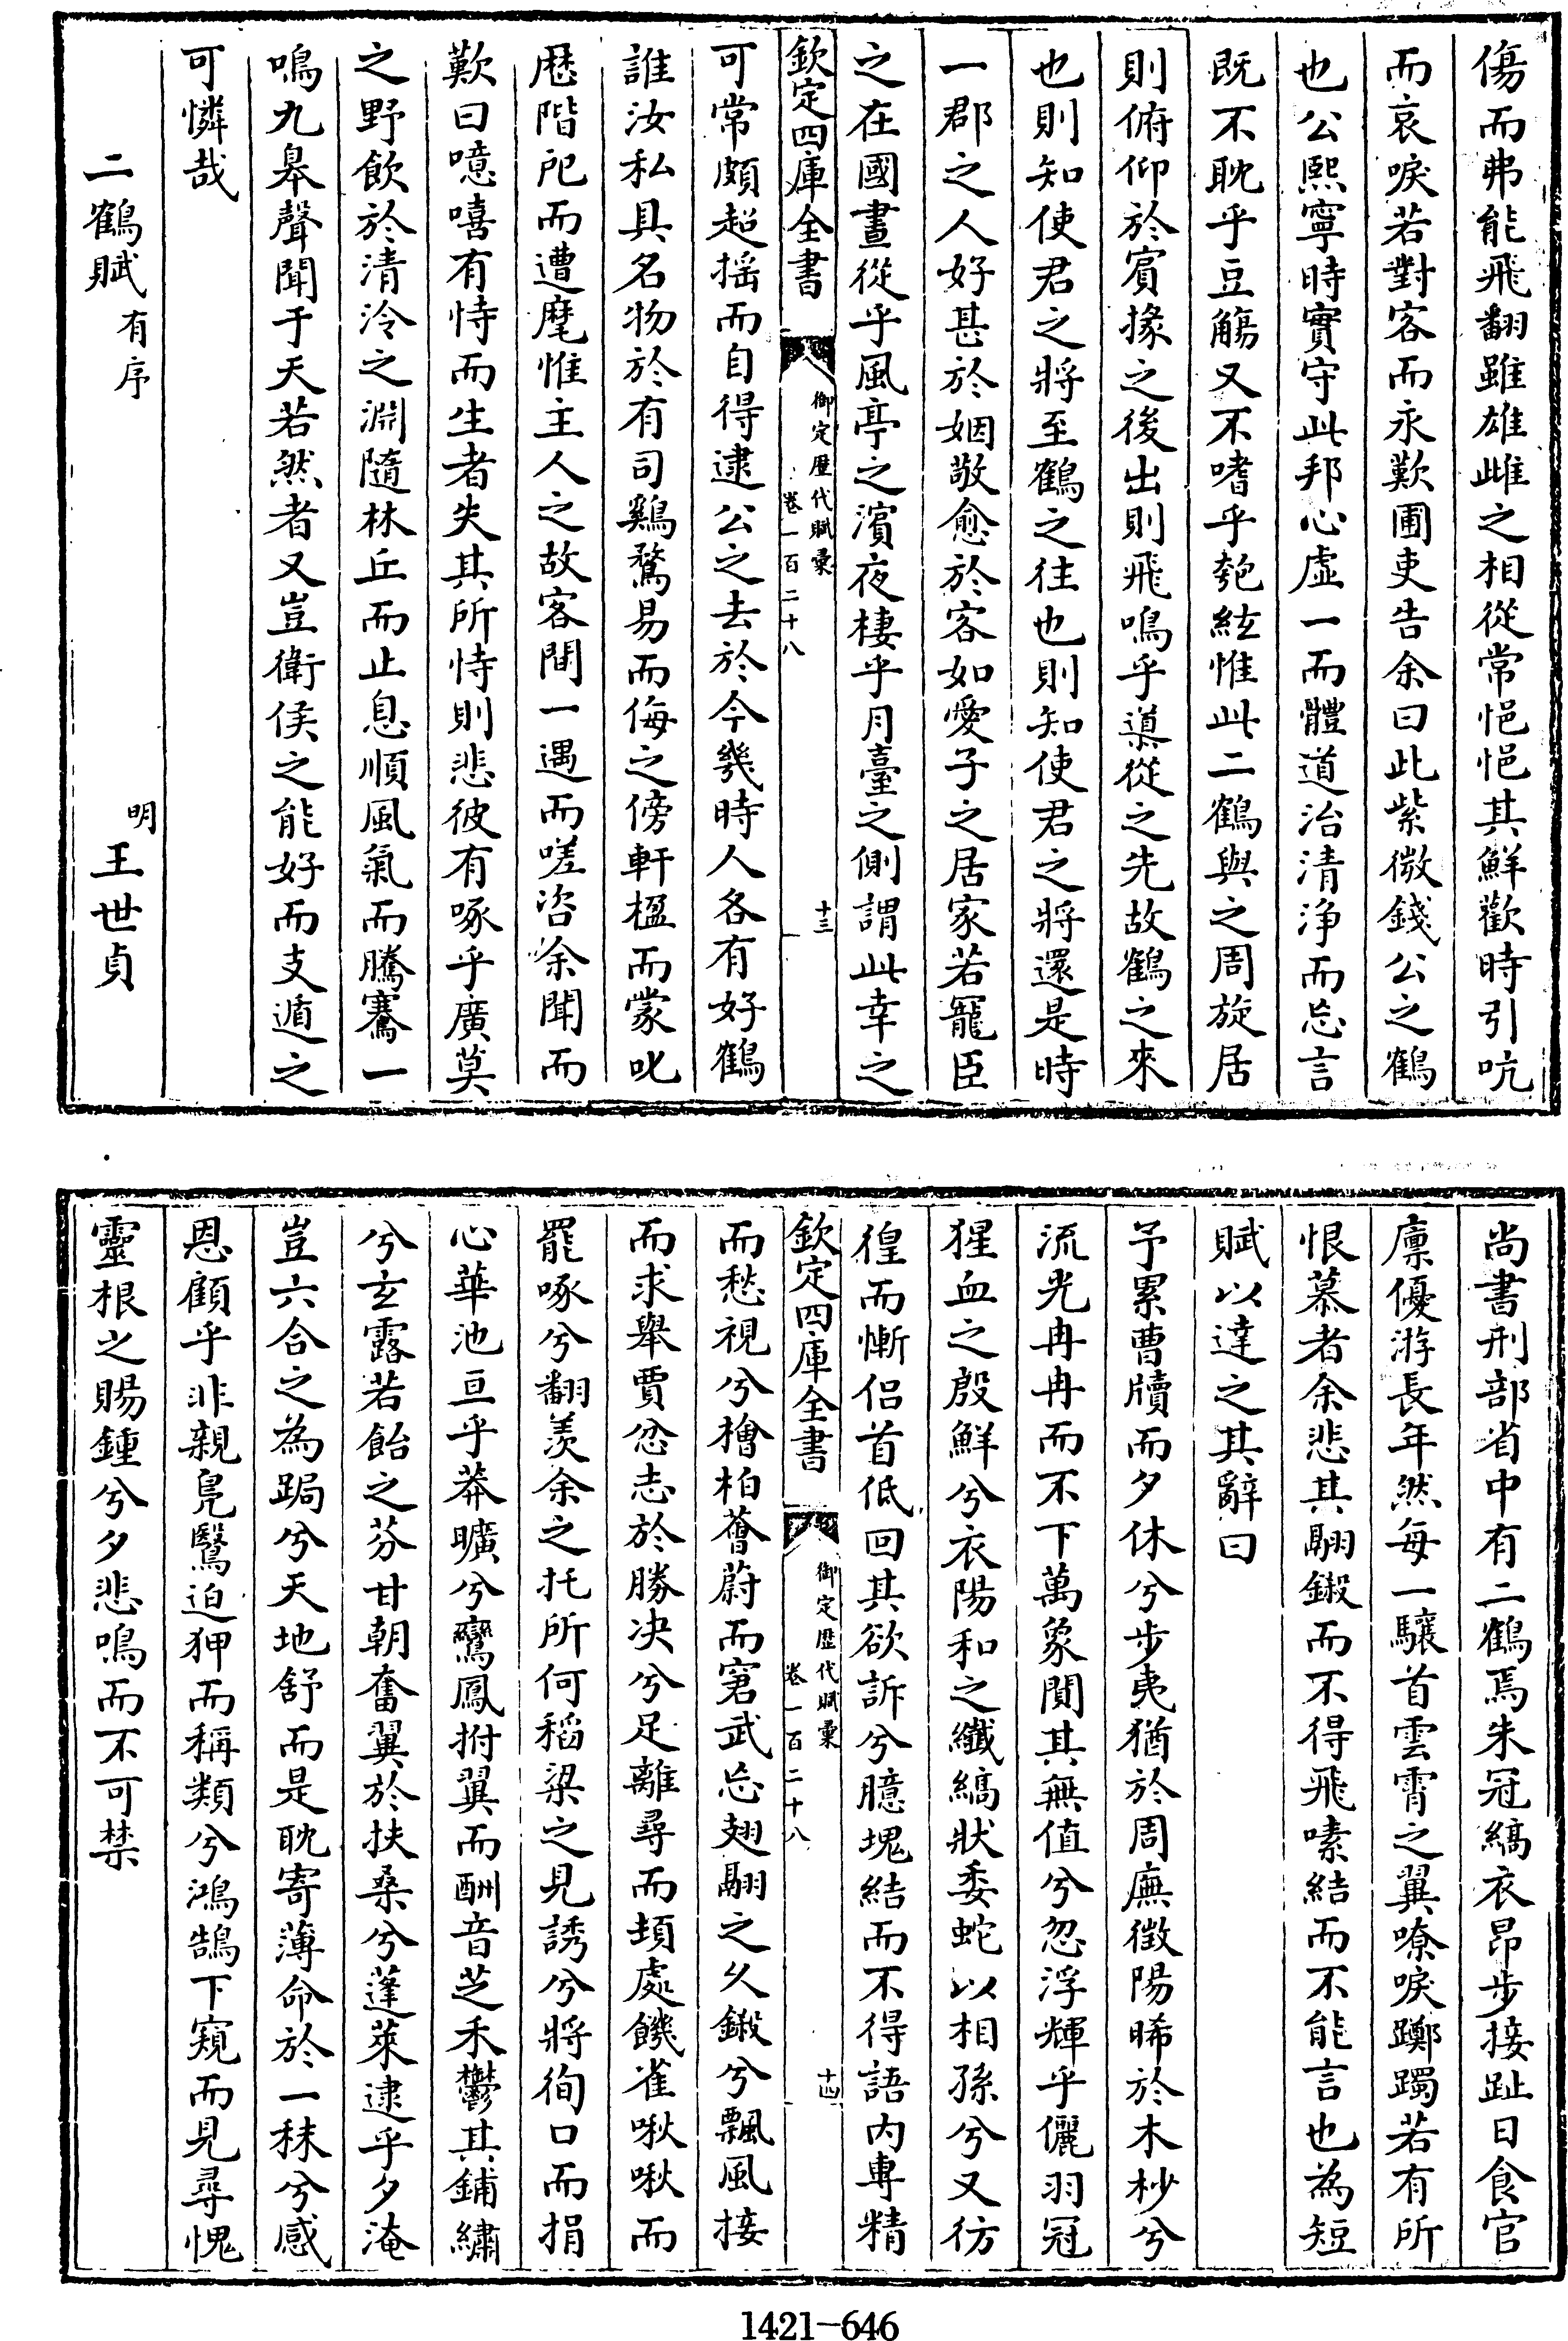 傷而弗能飛翻雖雄雌之相從常悒悒其鮮歡時引吭
而哀唳若對客而永歎圃吏告余曰此紫微錢公之鶴
也公熙寧時實守此邦心虛一而體道治清浄而忘言
既不耽乎豆觴又不嗜乎匏絃惟此二鶴與之周旋居
則俯仰於賓掾之後出則飛鳴乎導從之先故鶴之來
也則知使君之將至鶴之往也則知使君之將還是時
一郡之人好甚於姻敬愈於客如愛子之居家若寵臣
之在國晝從乎風亭之濵夜棲乎月臺之側謂此幸之
欽定四庫全書
御定歴代賦彙
卷一百二十八
十三
可常頗超摇而自得逮公之去於今幾時人各有好鶴
誰汝私具名物於有司鷄鶩易而侮之傍軒楹而蒙叱
歴階戺而遭麾惟主人之故客間一遇而嗟咨余聞而
歎曰噫嘻有恃而生者失其所恃則悲彼有啄乎廣莫
之野飲於清泠之淵隨林丘而止息順風氣而騰騫一
鳴九皋聲聞于天若然者又豈衛侯之能好而支遁之
可憐哉
二鶴賦有序
明王世貞
尚書刑部省中有二鶴焉朱冠縞衣昂步接趾日食官
廪優游長年然每一驤首雲霄之翼嘹唳躑躅若有所
恨慕者余悲其翮鎩而不得飛嗉結而不能言也為短
賦以達之其辭曰
予累曹牘而夕休兮步夷猶於周廡徴陽晞於木杪兮
流光冉冉而不下萬象閴其無值兮忽浮輝乎儷羽冠
猩血之殷鮮兮衣陽和之纖縞狀委蛇以相孫兮又彷
徨而慚侣首低回其欲訴兮臆塊結而不得語内專精
欽定四庫全書
御定歴代賦彙
卷一百二十八
十四
而愁視兮檜柏薈蔚而窘武忘翅翮之久鎩兮飄風接
而求舉賈忿志於勝决兮足離尋而頓處饑雀啾啾而
罷啄兮翻羡余之托所何稻梁之見誘兮將徇口而捐
心華池亘乎莽曠兮鸞鳳拊翼而酬音芝禾鬱其鋪繡
兮玄露若飴之芬甘朝奮翼於扶桑兮蓬萊逮乎夕淹
豈六合之為跼兮天地舒而是耽寄薄命於一秣兮感
恩顧乎非親鳧鷖迫狎而稱類兮鴻鵠下窺而見尋愧
靈根之賜鍾兮夕悲鳴而不可禁
1421-646